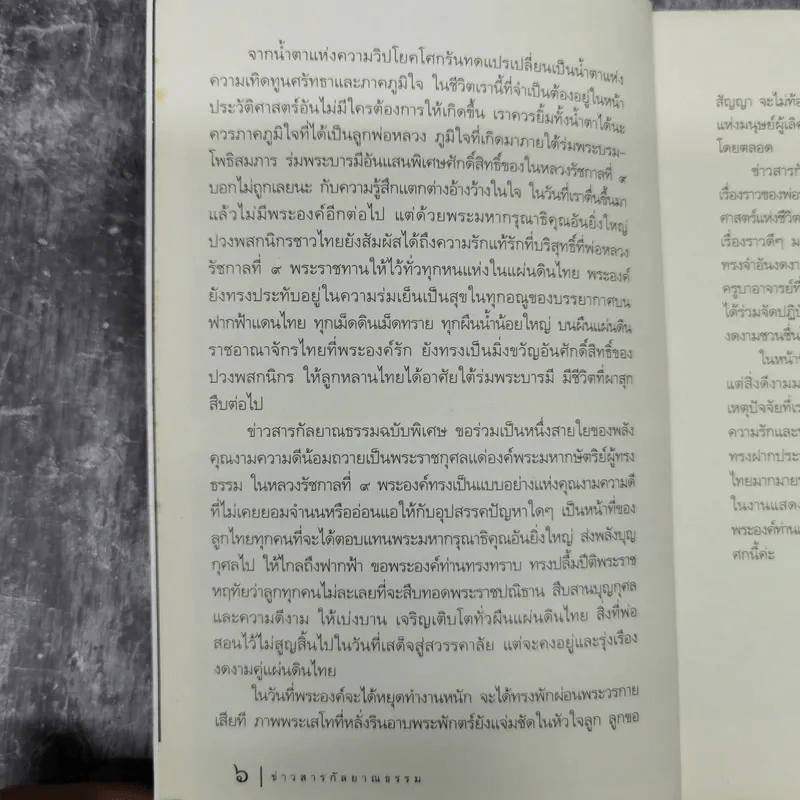 จากน้ำตาแห่งความวิปโยคโศกรันทดแปรเปลี่ยนเป็นน้ำตาแห่ง
ความเทิดทูนศรัทธาและภาคภูมิใจ ในชีวิตเรานี้ที่จำเป็นต้องอยู่ในหน้า
ประวัติศาสตร์อันไม่มีใครต้องการให้เกิดขึ้น เราควรยิ้มทั้งน้ำตาได้นะ
ควรภาคภูมิใจที่ได้เป็นลูกพ่อหลวง ภูมิใจที่เกิดมาภายใต้ร่มพระบรม-
โพธิสมภาร ร่มพระบารมีอันแสนพิเศษศักดิ์สิทธิ์ของในหลวงรัชกาลที่ ๙
บอกไม่ถูกเลยนะ กับความรู้สึกแตกต่างอ้างว้างในใจ ในวันที่เราตื่นขึ้นมา
แล้วไม่มีพระองค์อีกต่อไป แต่ด้วยพระมหากรุณาธิคุณอันยิ่งใหญ่
ปวงพสกนิกรชาวไทยยังสัมผัสได้ถึงความรักแท้รักที่บริสุทธิ์ที่พ่อหลวง
รัชกาลที่ ๙ พระราชทานให้ไว้ทั่วทุกหนแห่งในแผ่นดินไทย พระองค์
ยังทรงประทับอยู่ในความร่มเย็นเป็นสุขในทุกอณูของบรรยากาศบน
ฟากฟ้าแดนไทย ทุกเม็ดดินเม็ดทราย ทุกผืนน้ำน้อยใหญ่ บนผืนแผ่นดิน
ราชอาณาจักรไทยที่พระองค์รัก ยังทรงเป็นมิ่งขวัญอันศักดิ์สิทธิ์ของ
ปวงพสกนิกร ให้ลูกหลานไทยได้อาศัยใต้ร่มพระบารมี มีชีวิตที่ผาสุก
สืบต่อไป
ข่าวสารกัลยาณธรรมฉบับพิเศษ ขอร่วมเป็นหนึ่งสายใยของพลัง
คุณงามความดีน้อมถวายเป็นพระราชกุศลแด่องค์พระมหากษัตริย์ผู้ทรง
ธรรม ในหลวงรัชกาลที่ ๙ พระองค์ทรงเป็นแบบอย่างแห่งคุณงามความดี
ที่ไม่เคยยอมจำนนหรืออ่อนแอให้กับอุปสรรคปัญหาใดๆ เป็นหน้าที่ของ
ลูกไทยทุกคนที่จะได้ตอบแทนพระมหากรุณาธิคุณอันยิ่งใหญ่ ส่งพลังบุญ
กุศลไป ให้ไกลถึงฟากฟ้า ขอพระองค์ท่านทรงทราบ ทรงปลื้มปีติพระราช
หฤทัยว่าลูกทุกคนไม่ละเลยที่จะสืบทอดพระราชปณิธาน สืบสานบุญกุศล
และความดีงาม ให้เบ่งบาน เจริญเติบโตทั่วผืนแผ่นดินไทย สิ่งที่พ่อ
สอนไว้ไม่สูญสิ้นไปในวันที่เสด็จสู่สวรรคาลัย แต่จะคงอยู่และรุ่งเรือง
งดงามคู่แผ่นดินไทย
ในวันที่พระองค์จะได้หยุดทำงานหนัก จะได้ทรงพักผ่อนพระวรกาย
เสียที ภาพพระเสโทที่หลั่งรินอาบพระพักตร์ยังแจ่มชัดในหัวใจลูก ลูกขอ
๖ | ข่าวสารกัลยาณธรรม
สัญญา จะไม่ท้อ
แห่งมนุษย์ผู้เลิศ
โดยตลอด
ข่าวสารกั
เรื่องราวของพ่อ
ศาสตร์แห่งชีวิต
เรื่องราวดีๆ ม
ทรงจำอันงดงา
ครูบาอาจารย์ที่
ได้ร่วมจัดปฏิบั
งดงามชวนชื่น
ในหน้า
แต่สิ่งดีงามม
เหตุปัจจัยที่เ
ความรักและ
ทรงฝากประ
ไทยมากมาย
ในงานแสดง
พระองค์ท่าน
ศกนี้ค่ะ